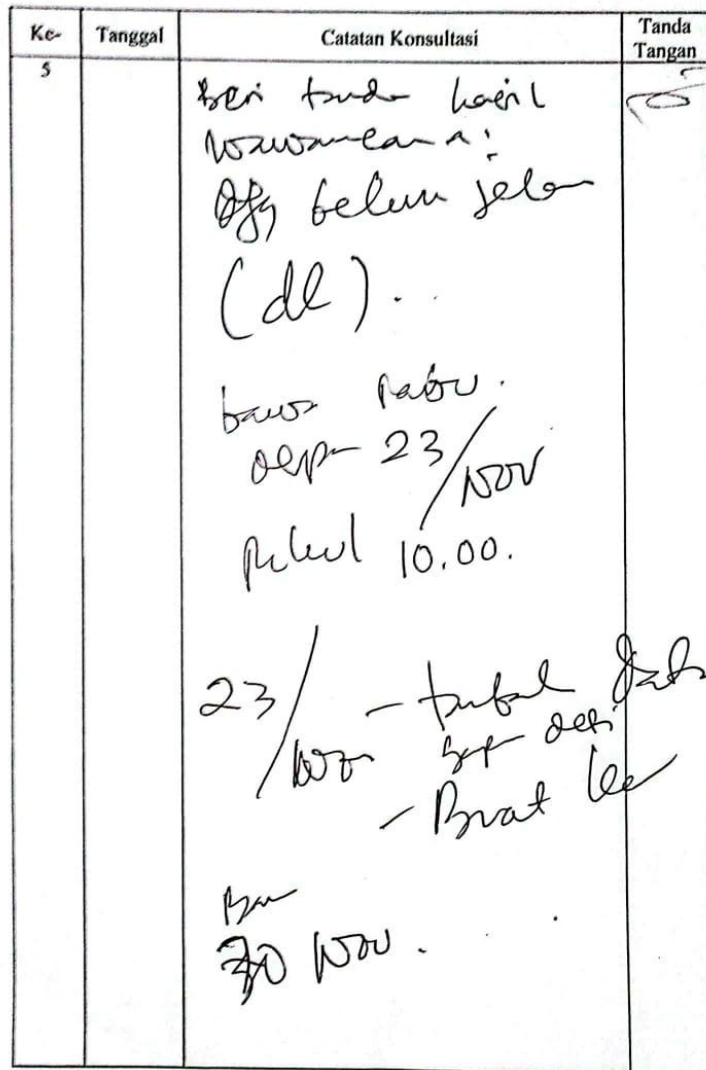 Ke- Tanggal Catatan Konsultasi Tanda Tangan
5
Beri tanda hasil
wawancara:
belum jelas
(dl)..
bawa Rabu.
depan 23/Nov
Pukul 10.00.
23/Nov - tambah data
- Buat
30 Nov.